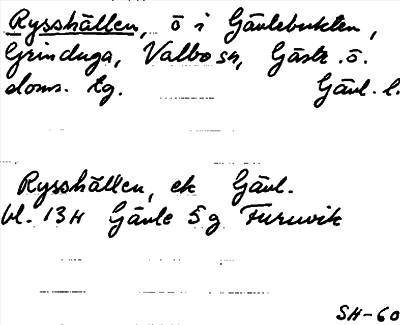 Rysshällen, ö i Gävlebukten,
Grinduga, Valbo sn, Gästr. ö.
doms. tg. Gävl. l.
Rysshällen, ek Gävl.
bl. 13H Gävle 5g Furuvik
SH-60